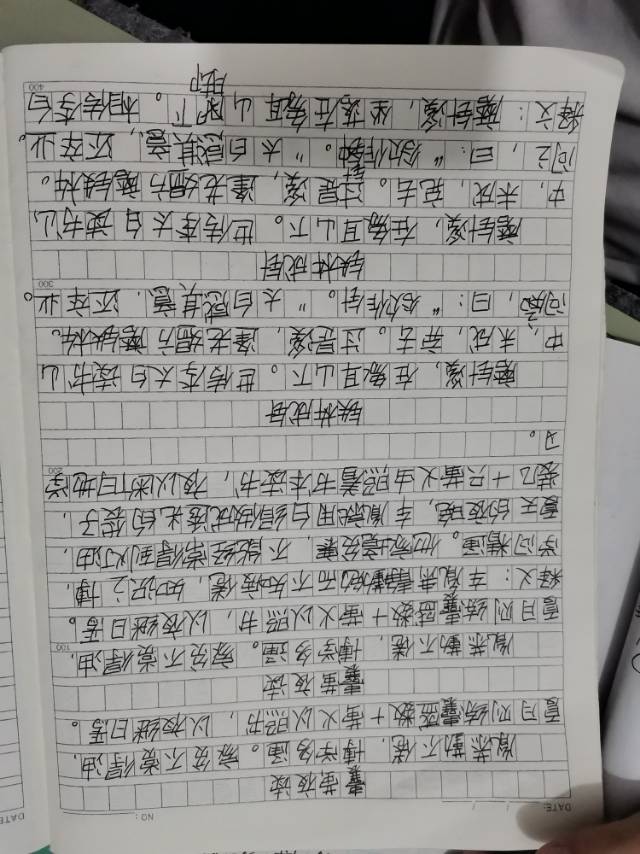 DATE: / / NO:
囊萤夜读
胤恭勤不倦，博学多通。家贫不常得油，
夏月则练囊盛数十萤火以照书，以夜继日焉。
囊萤夜读
胤恭勤不倦，博学多通。家贫不常得油，
夏月则练囊盛数十萤火以照书，以夜继日焉。
释文：车胤肃静勤勉而不知疲倦，知识之博，
学问精通。他家境贫寒，不能经常得到灯油，
夏天的夜晚，车胤就用白绢做成透光的袋子，
装几十只萤火虫照着书本读书，夜以继日地学
习。
铁杵成针
磨针溪，在象耳山下。世传李太白读书山
中，未成，弃去。过是溪，逢老媪方磨铁杵。
问之，曰：“欲作针。”太白感其意，还卒业。
铁杵成针
磨针溪，在象耳山下。世传李太白读书山
中，未成，弃去。过是溪，逢老媪方磨铁杵。
问之，曰：“欲作针。”太白感其意，还卒业。
释文：磨针溪，坐落在象耳山脚下。相传李白
100
200
300
400
DATE